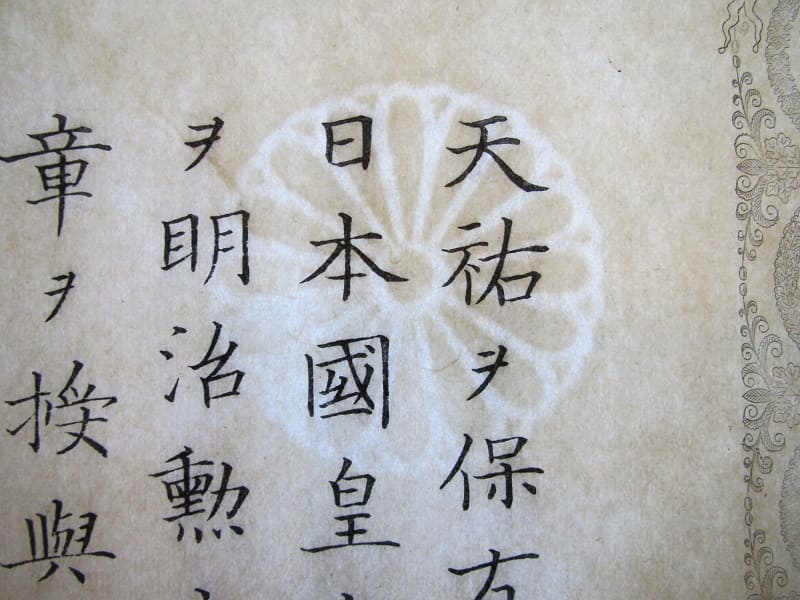 天祐ヲ保
日本國皇
ヲ明治勲
章ヲ授與